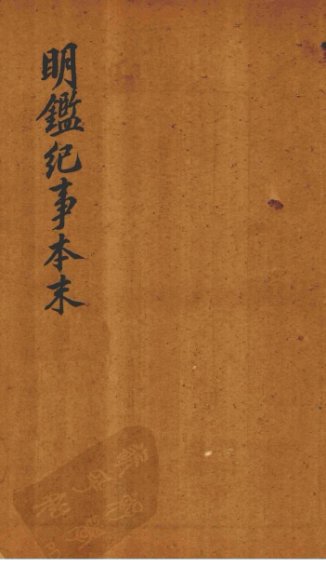 明鑑紀事本末